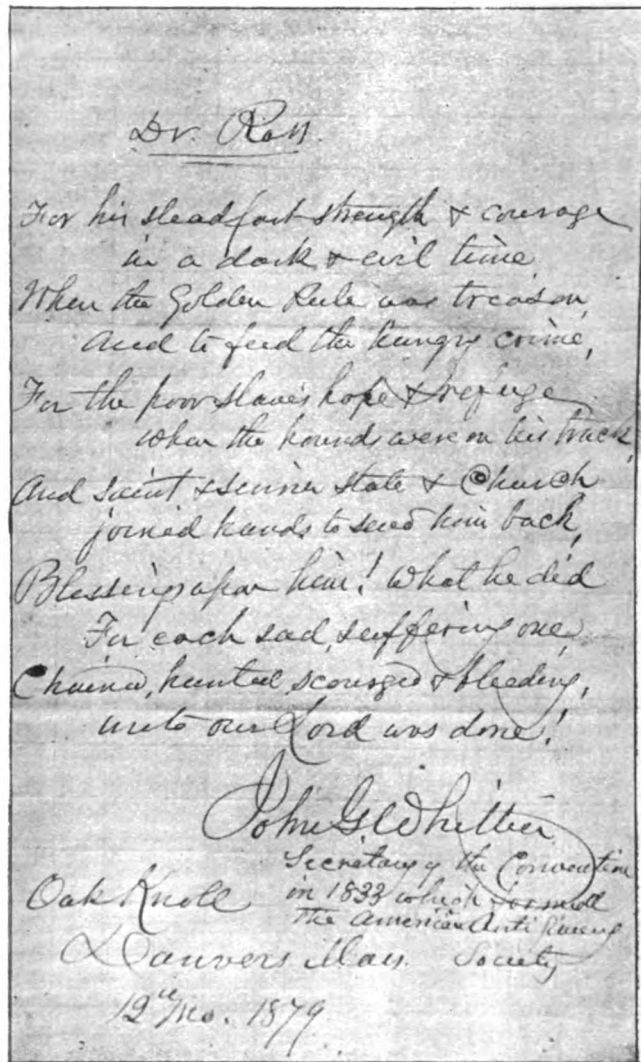 Dr. Ross.
For his steadfast strength & courage
in a dark & evil time
When the Golden Rule was treason,
And to feed the hungry crime,
For the poor slave's hope & refuge
when the hounds were on his track,
And saint & sinner state & Church
joined hands to send him back,
Blessings upon him! What he did
For each sad, suffering one,
Chained, hunted, scourged & bleeding,
unto our Lord was done!
John G Whittier
Secretary of the Convention
in 1833 which formed
the American Anti Slavery
Society
Oak Knoll
Danvers Mass.
12th Mo. 1879